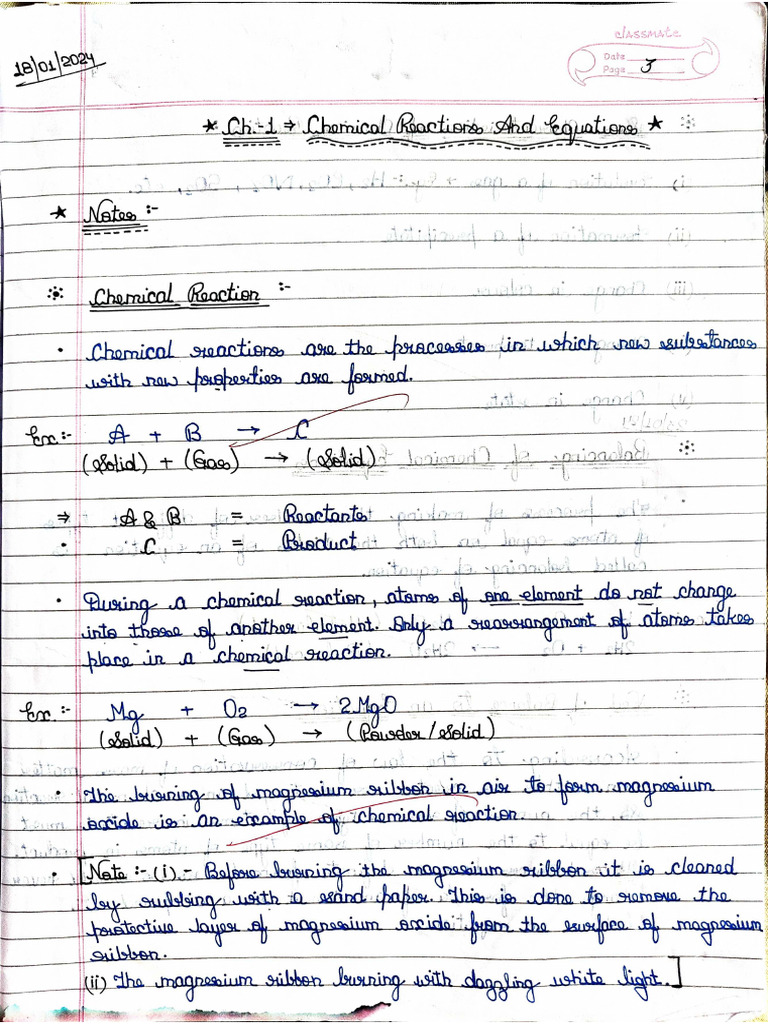 classmate
18/01/2024
Date
Page 3
* Ch.-1 ⇒ Chemical Reactions And Equations *
* Notes :-
Chemical Reaction :-
• Chemical reactions are the processes in which new substances
with new properties are formed.
Ex:- A + B → C
(Solid) + (Gas) → (Solid)
⇒ A & B = Reactants
• C = Product
• During a chemical reaction, atoms of one element do not change
into those of another element. Only a rearrangement of atoms takes
place in a chemical reaction.
Ex:- Mg + O2 → 2MgO
(Solid) + (Gas) → (Powder/Solid)
• The burning of magnesium ribbon in air to form magnesium
oxide is an example of chemical reaction.
• [Note :- (i).- Before burning the magnesium ribbon it is cleaned
by rubbing with a sand paper. This is done to remove the
protective layer of magnesium oxide from the surface of magnesium
ribbon.
(ii) The magnesium ribbon burning with dazzling white light.]